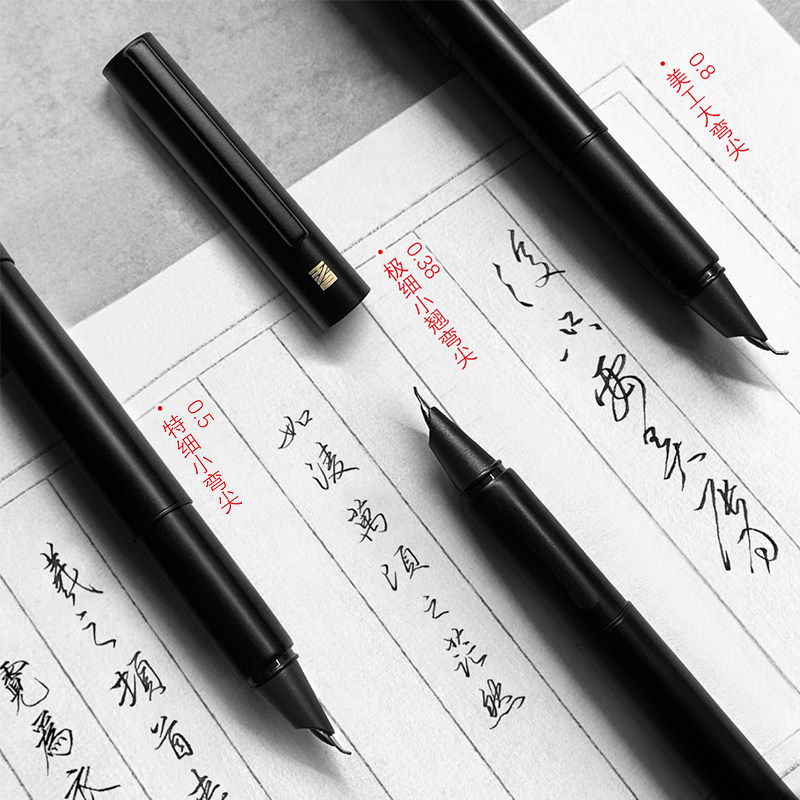 0.8
美工大弯尖
0.38
极细小翘弯尖
0.5
特细小弯尖
如淩萬頃之茫然
羲之頓首
霓爲衣